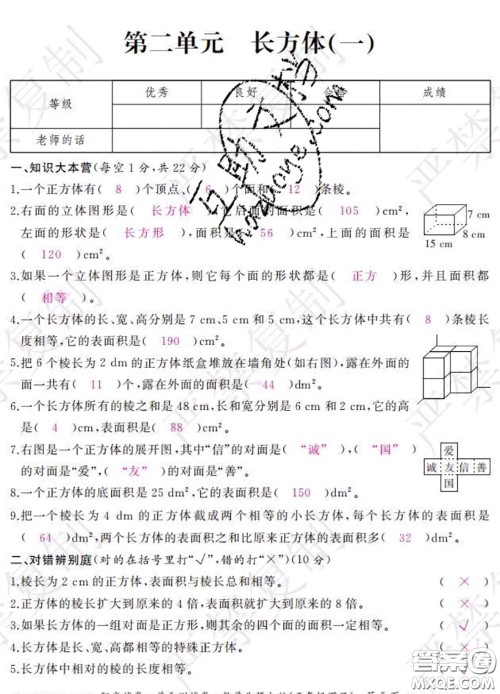 第二单元 长方体(一)
等级 优秀 良好 成绩
老师的话
一、知识大本营(每空1分,共22分)
1.一个正方体有( 8 )个顶点、( 6 )个面和( 12 )条棱。
2.右面的立体图形是( 长方体 ),它后面的面积是( 105 )cm²,
左面的形状是( 长方形 ),面积是( 56 )cm²,上面的面积是
( 120 )cm²。
7 cm
8 cm
15 cm
3.如果一个立体图形是正方体,则它每个面的形状都是( 正方 )形,并且面积都
( 相等 )。
4.一个长方体的长、宽、高分别是7 cm、5 cm和5 cm,这个长方体中共有( 8 )条棱长
度相等,它的表面积是( 190 )cm²。
5.把6个棱长为2 dm的正方体纸盒堆放在墙角处(如右图),露在外面的
面一共有( 11 )个,露在外面的面积是( 44 )dm²。
6.一个长方体所有的棱之和是48 cm,长和宽分别是6 cm和2 cm,它的高
是( 4 )cm,表面积是( 88 )cm²。
7.右图是一个正方体的展开图,其中“信”的对面是( “诚” ),( “国” )
的对面是“爱”,( “友” )的对面是“善”。
爱
诚 友 信 善
国
8.一个正方体的底面积是25 dm²,它的表面积是( 150 )dm²。
9.把一个棱长为4 dm的正方体截成两个相等的小长方体,每个长方体的表面积是
( 64 )dm²,两个长方体的表面积之和比原来正方体的表面积多( 32 )dm²。
二、对错辨别庭(对的在括号里打“√”,错的打“×”)(10分)
1.棱长为2 cm的正方体,表面积与棱长总和相等。 ( × )
2.正方体的棱长扩大到原来的4倍,表面积就扩大到原来的8倍。 ( × )
3.如果长方体的一组对面是正方形,则其余的四个面的面积一定相等。 ( √ )
4.长方体是长、宽、高都相等的特殊正方体。 ( × )
5.长方体中相对的棱的长度相等。
严禁复制
答案圈
MXQE.COM